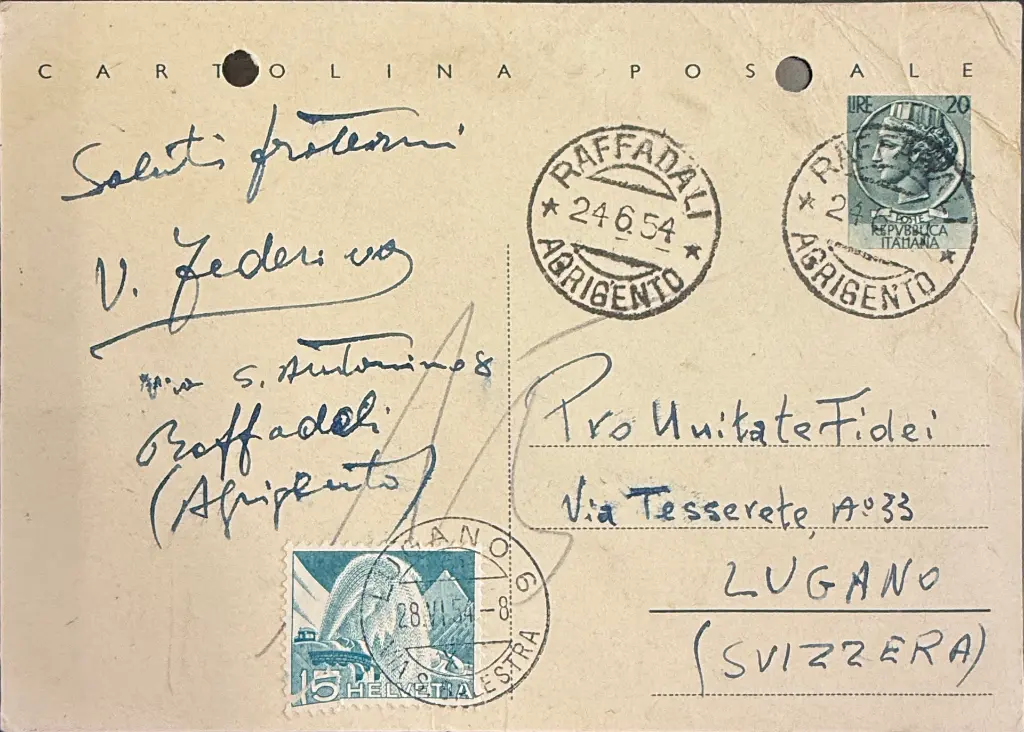 CARTOLINA POSTALE
LIRE 20
POSTE
REPVBBLICA
ITALIANA
RAFFADALI
24.6.54
AGRIGENTO
RAFFADALI
AGRIGENTO
Saluti fraterni
V.
S. Antonino 8
Raffadali
(Agrigento)
Pro Unitate Fidei
Via Tesserete, No 33
LUGANO
(SVIZZERA)
LUGANO 6
28.VI.54-8
15 HELVETIA